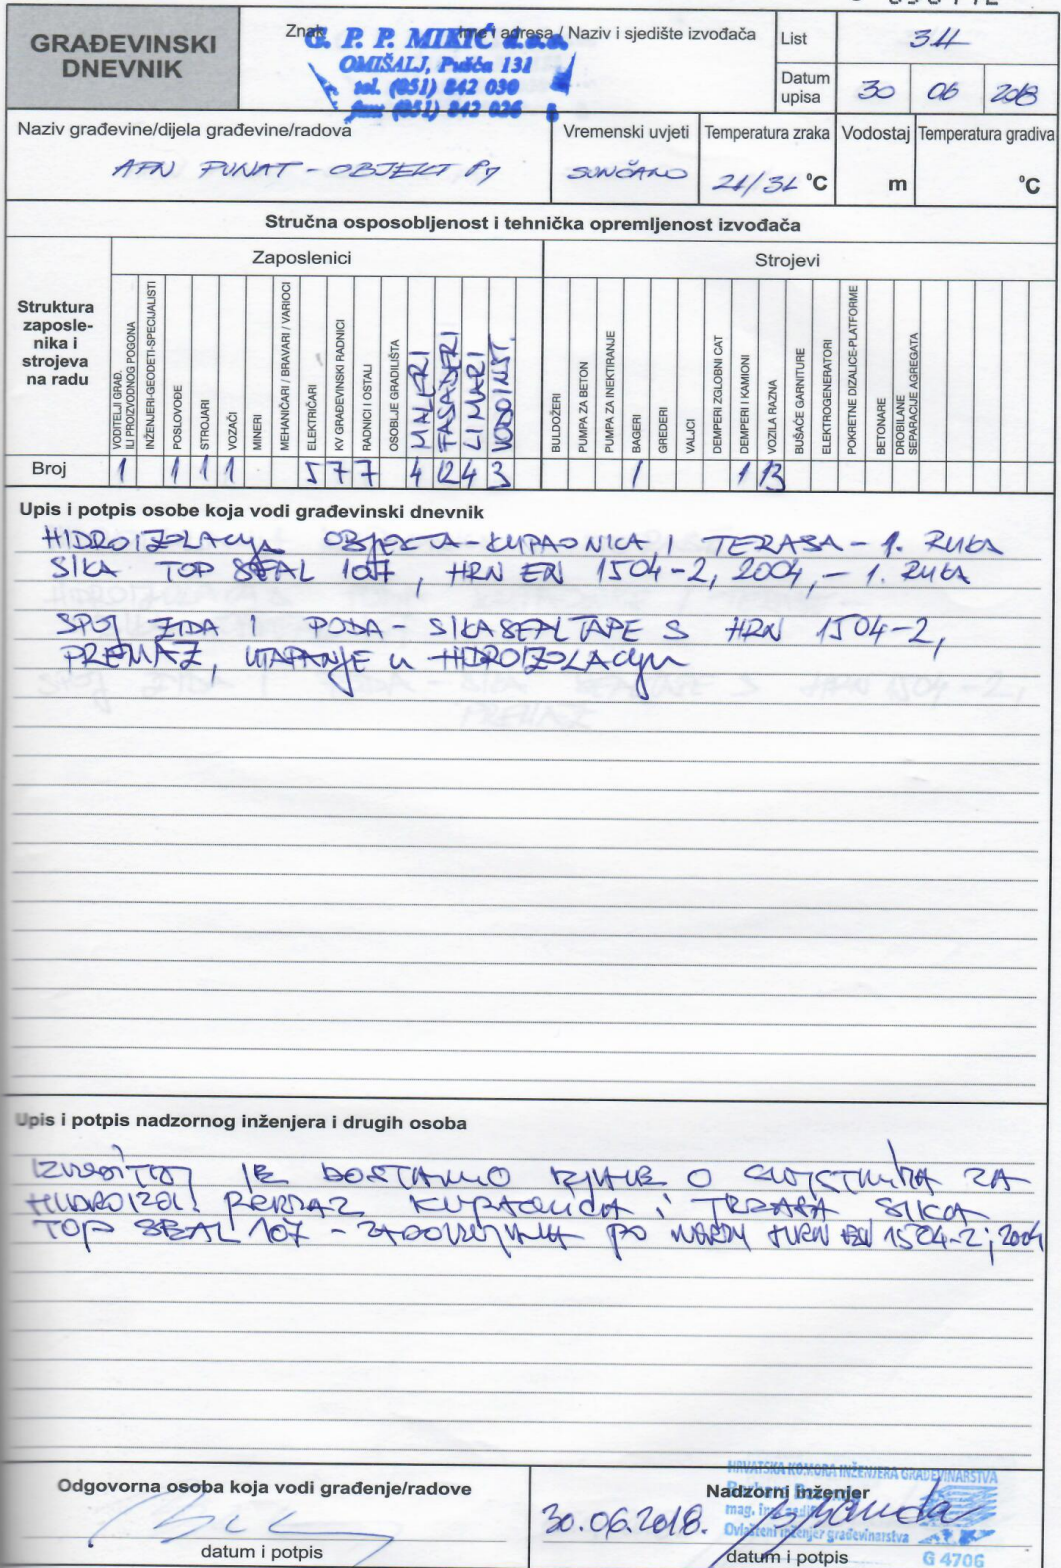 GRAĐEVINSKI
DNEVNIK
Znak Ime i adresa / Naziv i sjedište izvođača
G. P. P. MIKIĆ d.o.o.
OMIŠALJ, Pušća 131
tel. (051) 842 030
fax: (051) 842 026
List
Datum
upisa
30 06 2018
Naziv građevine/dijela građevine/radova
AFN PUNAT - OBJEKT P7
Vremenski uvjeti
SUNČANO
Temperatura zraka
°C
Vodostaj
m
Temperatura gradiva
°C
Stručna osposobljenost i tehnička opremljenost izvođača
Struktura
zaposle-
nika i
strojeva
na radu
Zaposlenici
Strojevi
VODITELJI GRAĐ.
ILI PROIZVODNOG POGONA
INŽENJERI-GEODETI-SPECIJALISTI
POSLOVOĐE
STROJARI
VOZAČI
MINERI
MEHANIČARI / BRAVARI / VARIOCI
ELEKTRIČARI
KV GRAĐEVINSKI RADNICI
RADNICI I OSTALI
OSOBLJE GRADILIŠTA
MALERI
FASADERI
LIMARI
VODOINST.
BULDOŽERI
PUMPA ZA BETON
PUMPA ZA INEKTIRANJE
BAGERI
GREDERI
VALJCI
DEMPERI ZGLOBNI CAT
DEMPERI I KAMIONI
VOZILA RAZNA
BUŠAĆE GARNITURE
ELEKTROGENERATORI
POKRETNE DIZALICE-PLATFORME
BETONARE
DROBILANE
SEPARACIJE AGREGATA
Broj 1 1 1 1 5 7 7 4 12 4 3 1 1 13
Upis i potpis osobe koja vodi građevinski dnevnik
HIDROIZOLACIJA OBJEKTA - KUPAONICA I TERASA - 1. RUKA
SIKA TOP SEAL 107, HRN EN 1504-2, 2004, - 1. RUKA
SPOJ ZIDA I PODA - SIKASEALTAPE S HRN 1504-2,
PREMAZ, UTAPANJE U HIDROIZOLACIJU
Upis i potpis nadzornog inženjera i drugih osoba
IZVODITELJ JE DOSTAVIO IZJAVE O SVOJSTVIMA ZA
HIDROIZOL. PREMAZ KUPAONICA I TERASA SIKA
TOP SEAL 107 - ZADOVOLJAVA PO NORMI HRN EN 1504-2; 2004
Odgovorna osoba koja vodi građenje/radove
datum i potpis
HRVATSKA KOMORA INŽENJERA GRAĐEVINARSTVA
Nadzorni inženjer
30.06.2018.
Ovlašteni inženjer građevinarstva
datum i potpis
G 4706